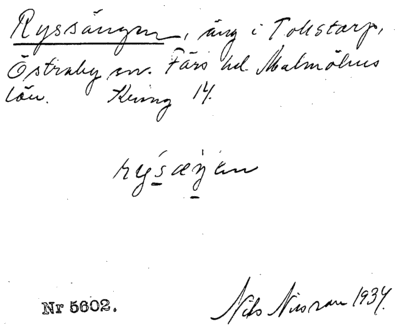 Ryssängen, äng i Tollstarp,
Östraby sn. Färs hd. Malmöhus
län. Kring 14.
rysæŋen
Nr 5602.
Nils Nilsson 1934.